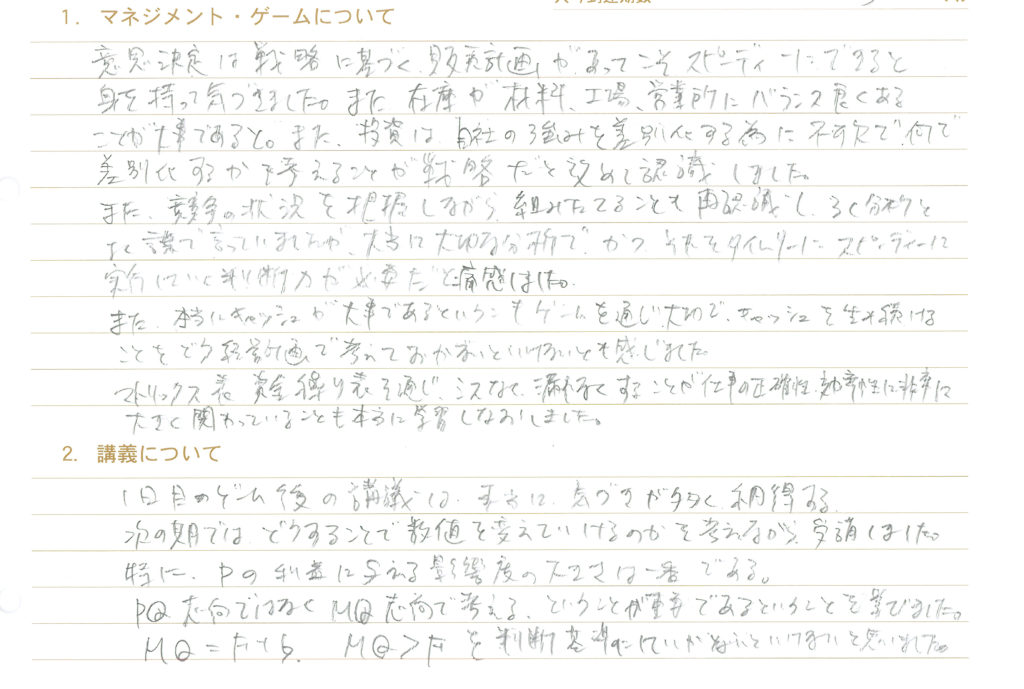 1. マネジメント・ゲームについて
意思決定は戦略に基づく、販売計画があってこそスピーディーにできると
身を持って気づきました。また在庫が材料、工場、営業所にバランス良くある
ことが大事であると。また、投資は、自社の強みを差別化する為に不可欠で、何で
差別化するかを考えることが戦略だと改めて認識しました。
また、競争の状況を把握しながら、組みたてることも再認識し、よく分析と
よく言葉で言っていましたが、本当に大切な分析で、かつ それをタイムリーに スピーディーに
実行していく判断力が必要だと痛感しました。
また、本当にキャッシュが大事であるということもゲームを通じ、大切で、キャッシュを生み続ける
ことをどう経営計画で考えておかないといけないとも感じました。
マトリックス表、資金繰り表を通じ、ミスなく、漏れなくすることが仕事の正確性、効率性に非常に
大きく関わっていることも本当に学習しなおしました。
2. 講義について
1日目のゲーム後の講義は、本当に、気づきが多く、納得する。
次の期では、どうすることで数値を変えていけるのかを考えながら、受講しました。
特に、Pの利益に与える影響度の大きさは一番である。
PQ志向ではなくMQ志向で考える、ということが重要であるということを学びました。
MQ=F+G、 MQ>Fを判断基準にしていかないといけないと思いました。